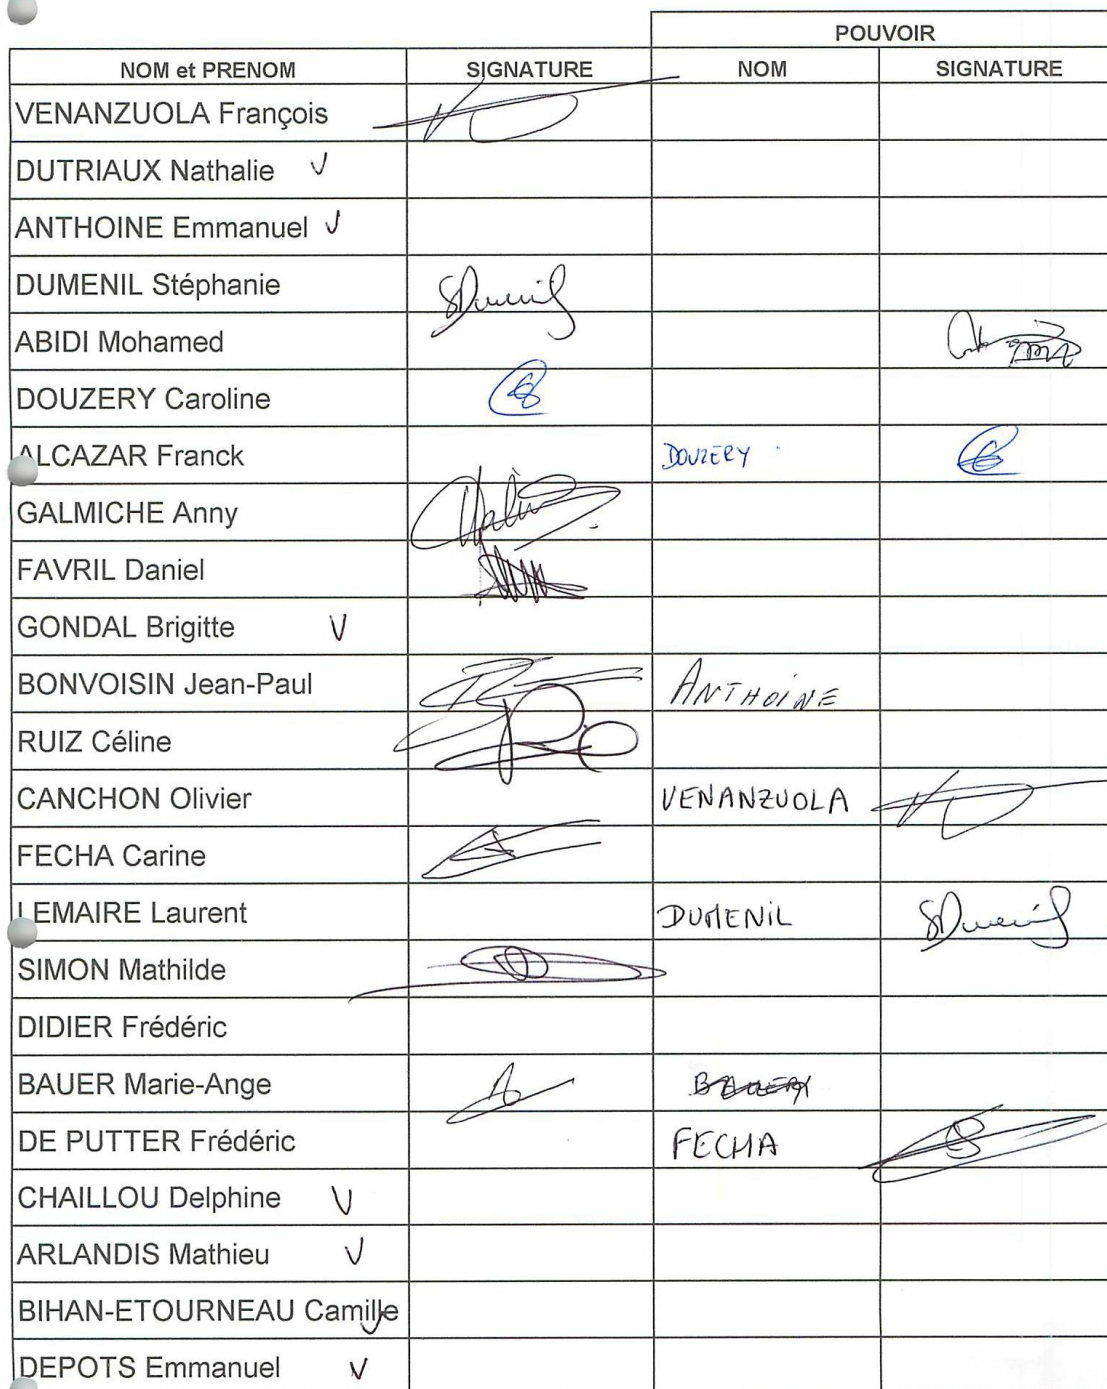 POUVOIR
NOM et PRENOM SIGNATURE NOM SIGNATURE
VENANZUOLA François
DUTRIAUX Nathalie V
ANTHOINE Emmanuel V
DUMENIL Stéphanie SDumenil
ABIDI Mohamed
DOUZERY Caroline
ALCAZAR Franck DOUZERY
GALMICHE Anny
FAVRIL Daniel
GONDAL Brigitte V
BONVOISIN Jean-Paul ANTHOINE
RUIZ Céline
CANCHON Olivier VENANZUOLA
FECHA Carine
LEMAIRE Laurent DUMENIL SDumenil
SIMON Mathilde
DIDIER Frédéric
BAUER Marie-Ange
DE PUTTER Frédéric FECHA
CHAILLOU Delphine V
ARLANDIS Mathieu V
BIHAN-ETOURNEAU Camille V
DEPOTS Emmanuel V